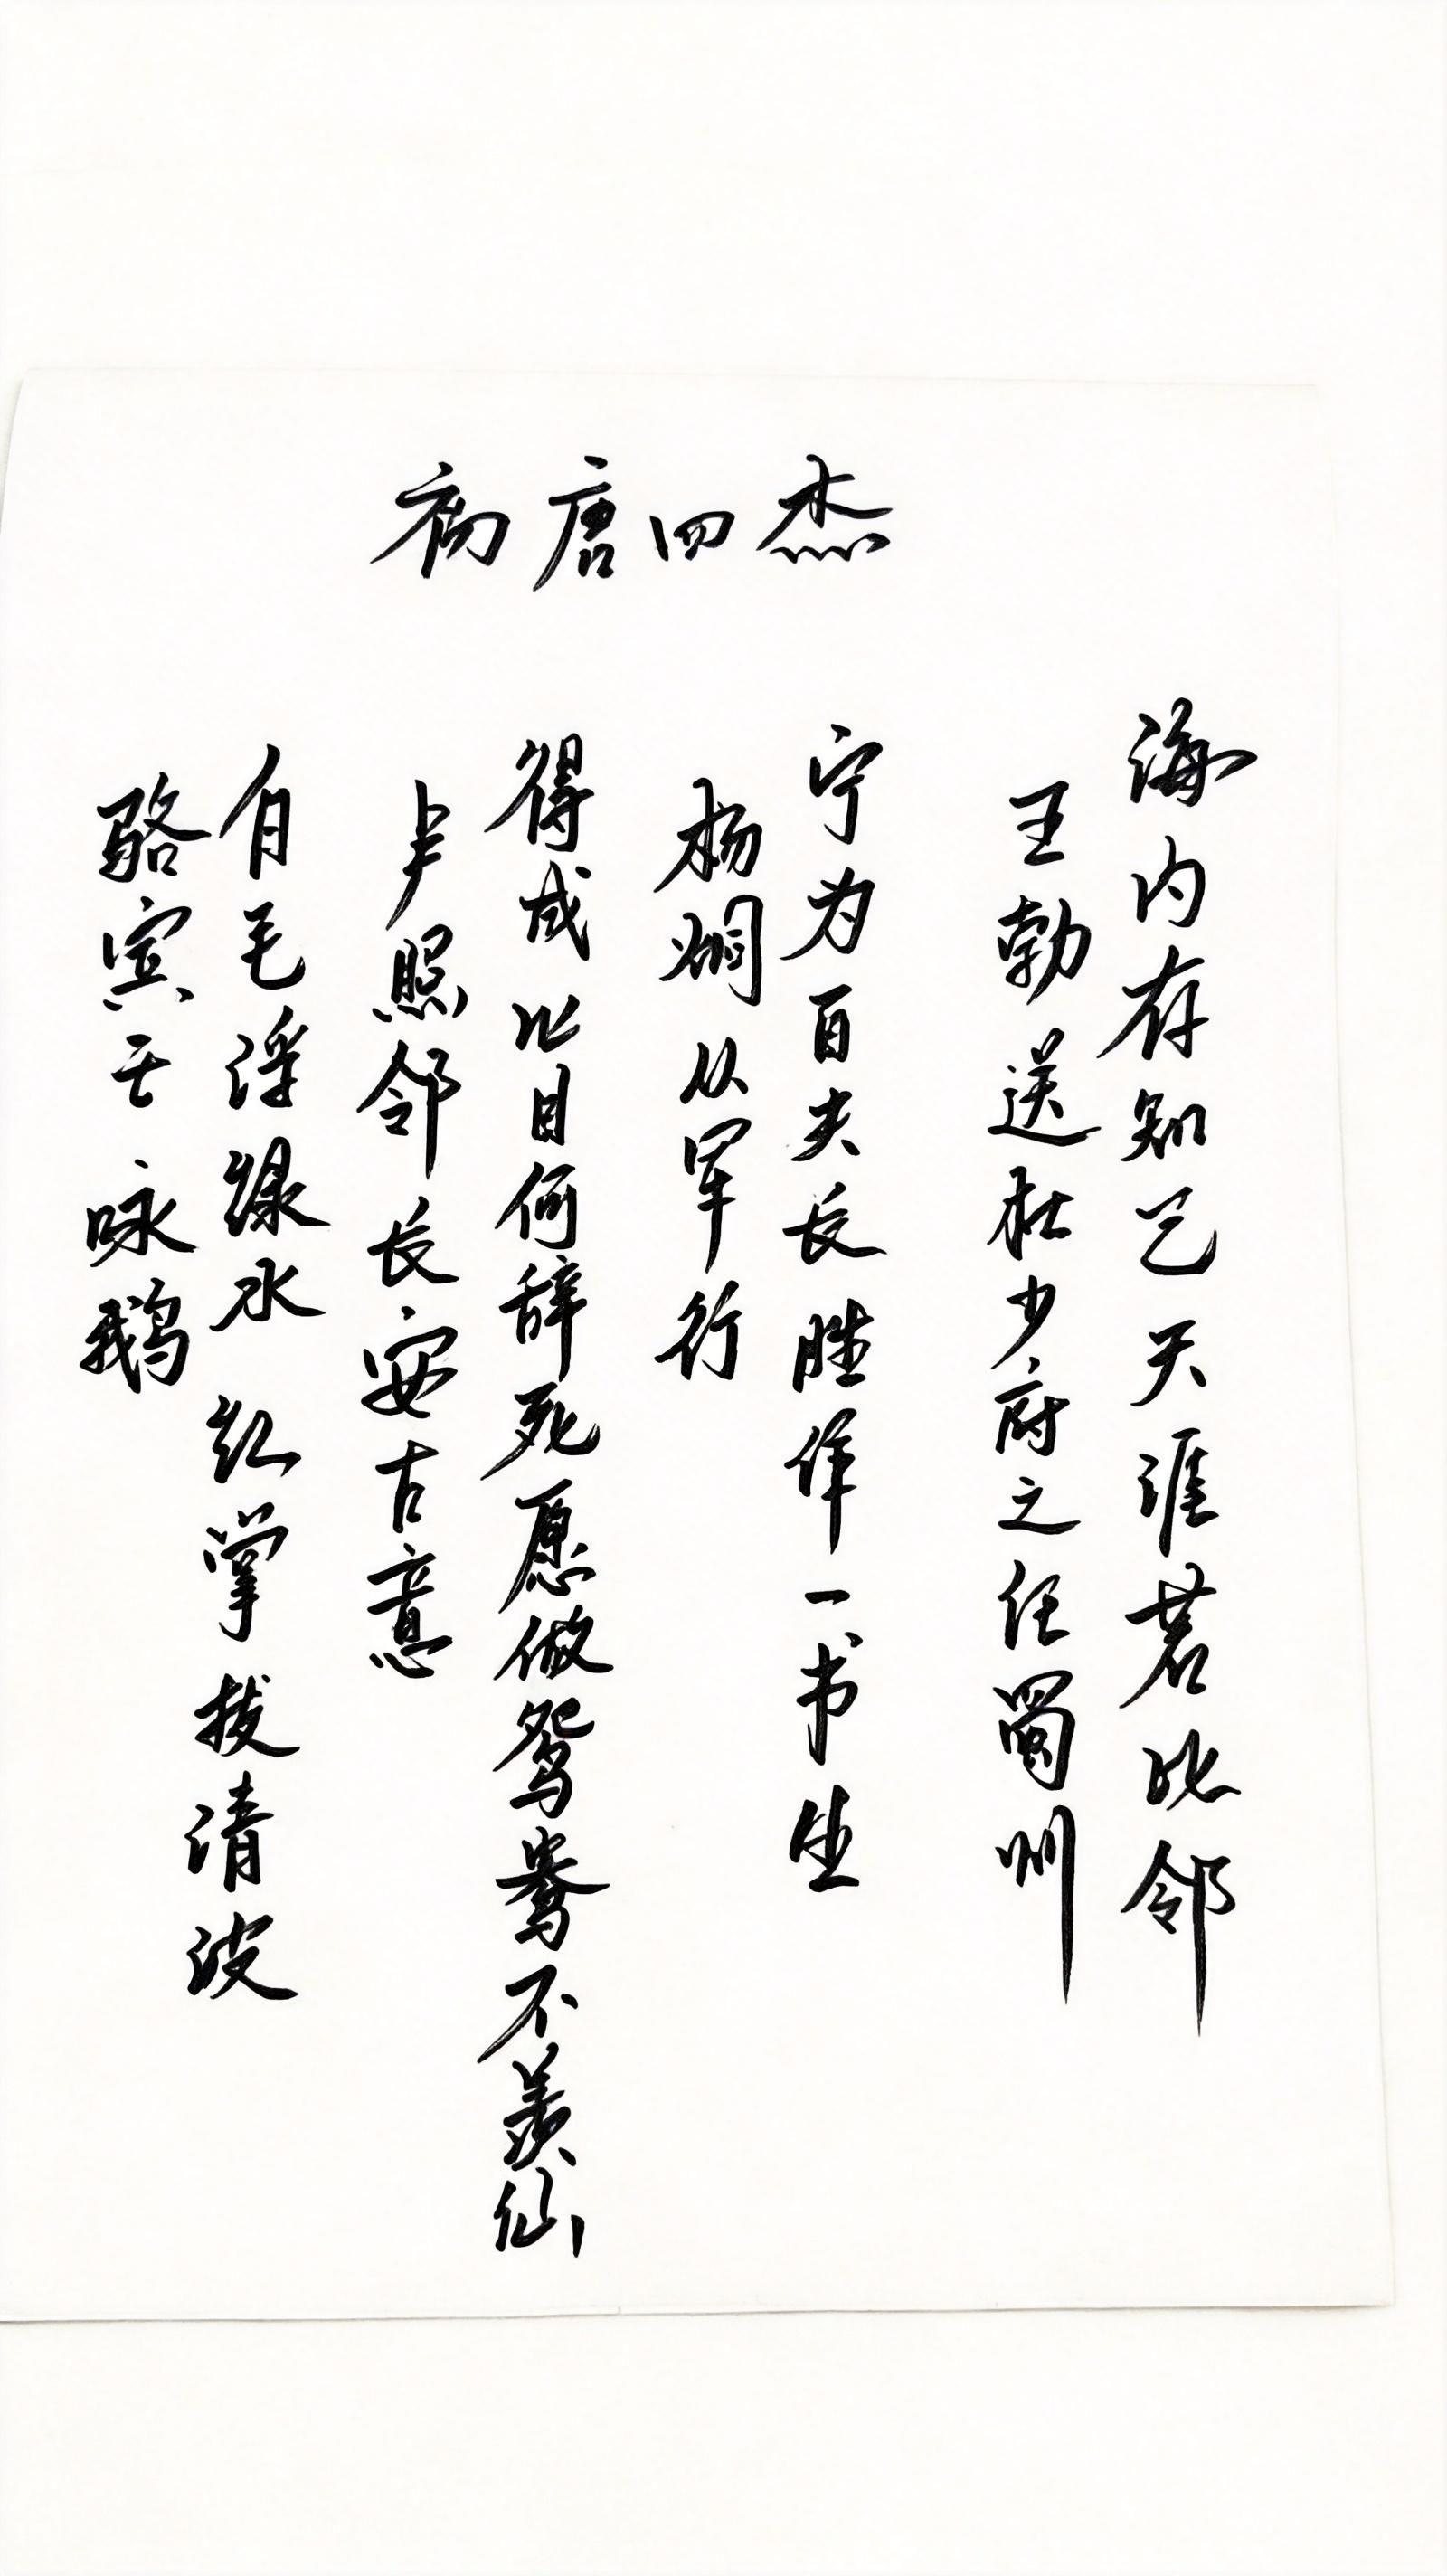 初唐四杰
海内存知己天涯若比邻
王勃送杜少府之任蜀州
宁为百夫长胜作一书生
杨炯从军行
得成比目何辞死愿做鸳鸯不羡仙
卢照邻长安古意
白毛浮绿水红掌拨清波
骆宾王咏鹅